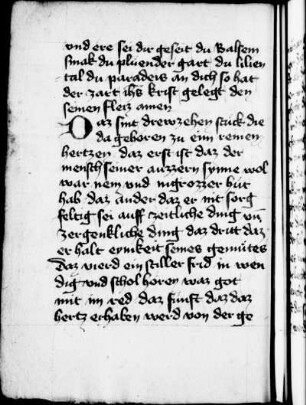 vnd ere sei dir geseit du balsem
smak du plüender gart du lilien
tal du paradeis an dich so hat
der zart ihs krist gelegt den
seinen fleiz amen
Daz sint drewzehen stuck die
da gehoren zu eim reinen
hertzen daz erst ist daz der
mensch seiner auzzern synne wol
war nem vnd in grozzer hut
hab daz ander daz er nit sorg
feltig sei auf zeitliche ding vn
zergenkliche ding daz drit daz
er halt eynikeit seines gemütes
Daz vierd ein stiller frid in wen
dig vnd schol horen waz got
mit im red daz fünft daz daz
hertz erhaben werd von der ge